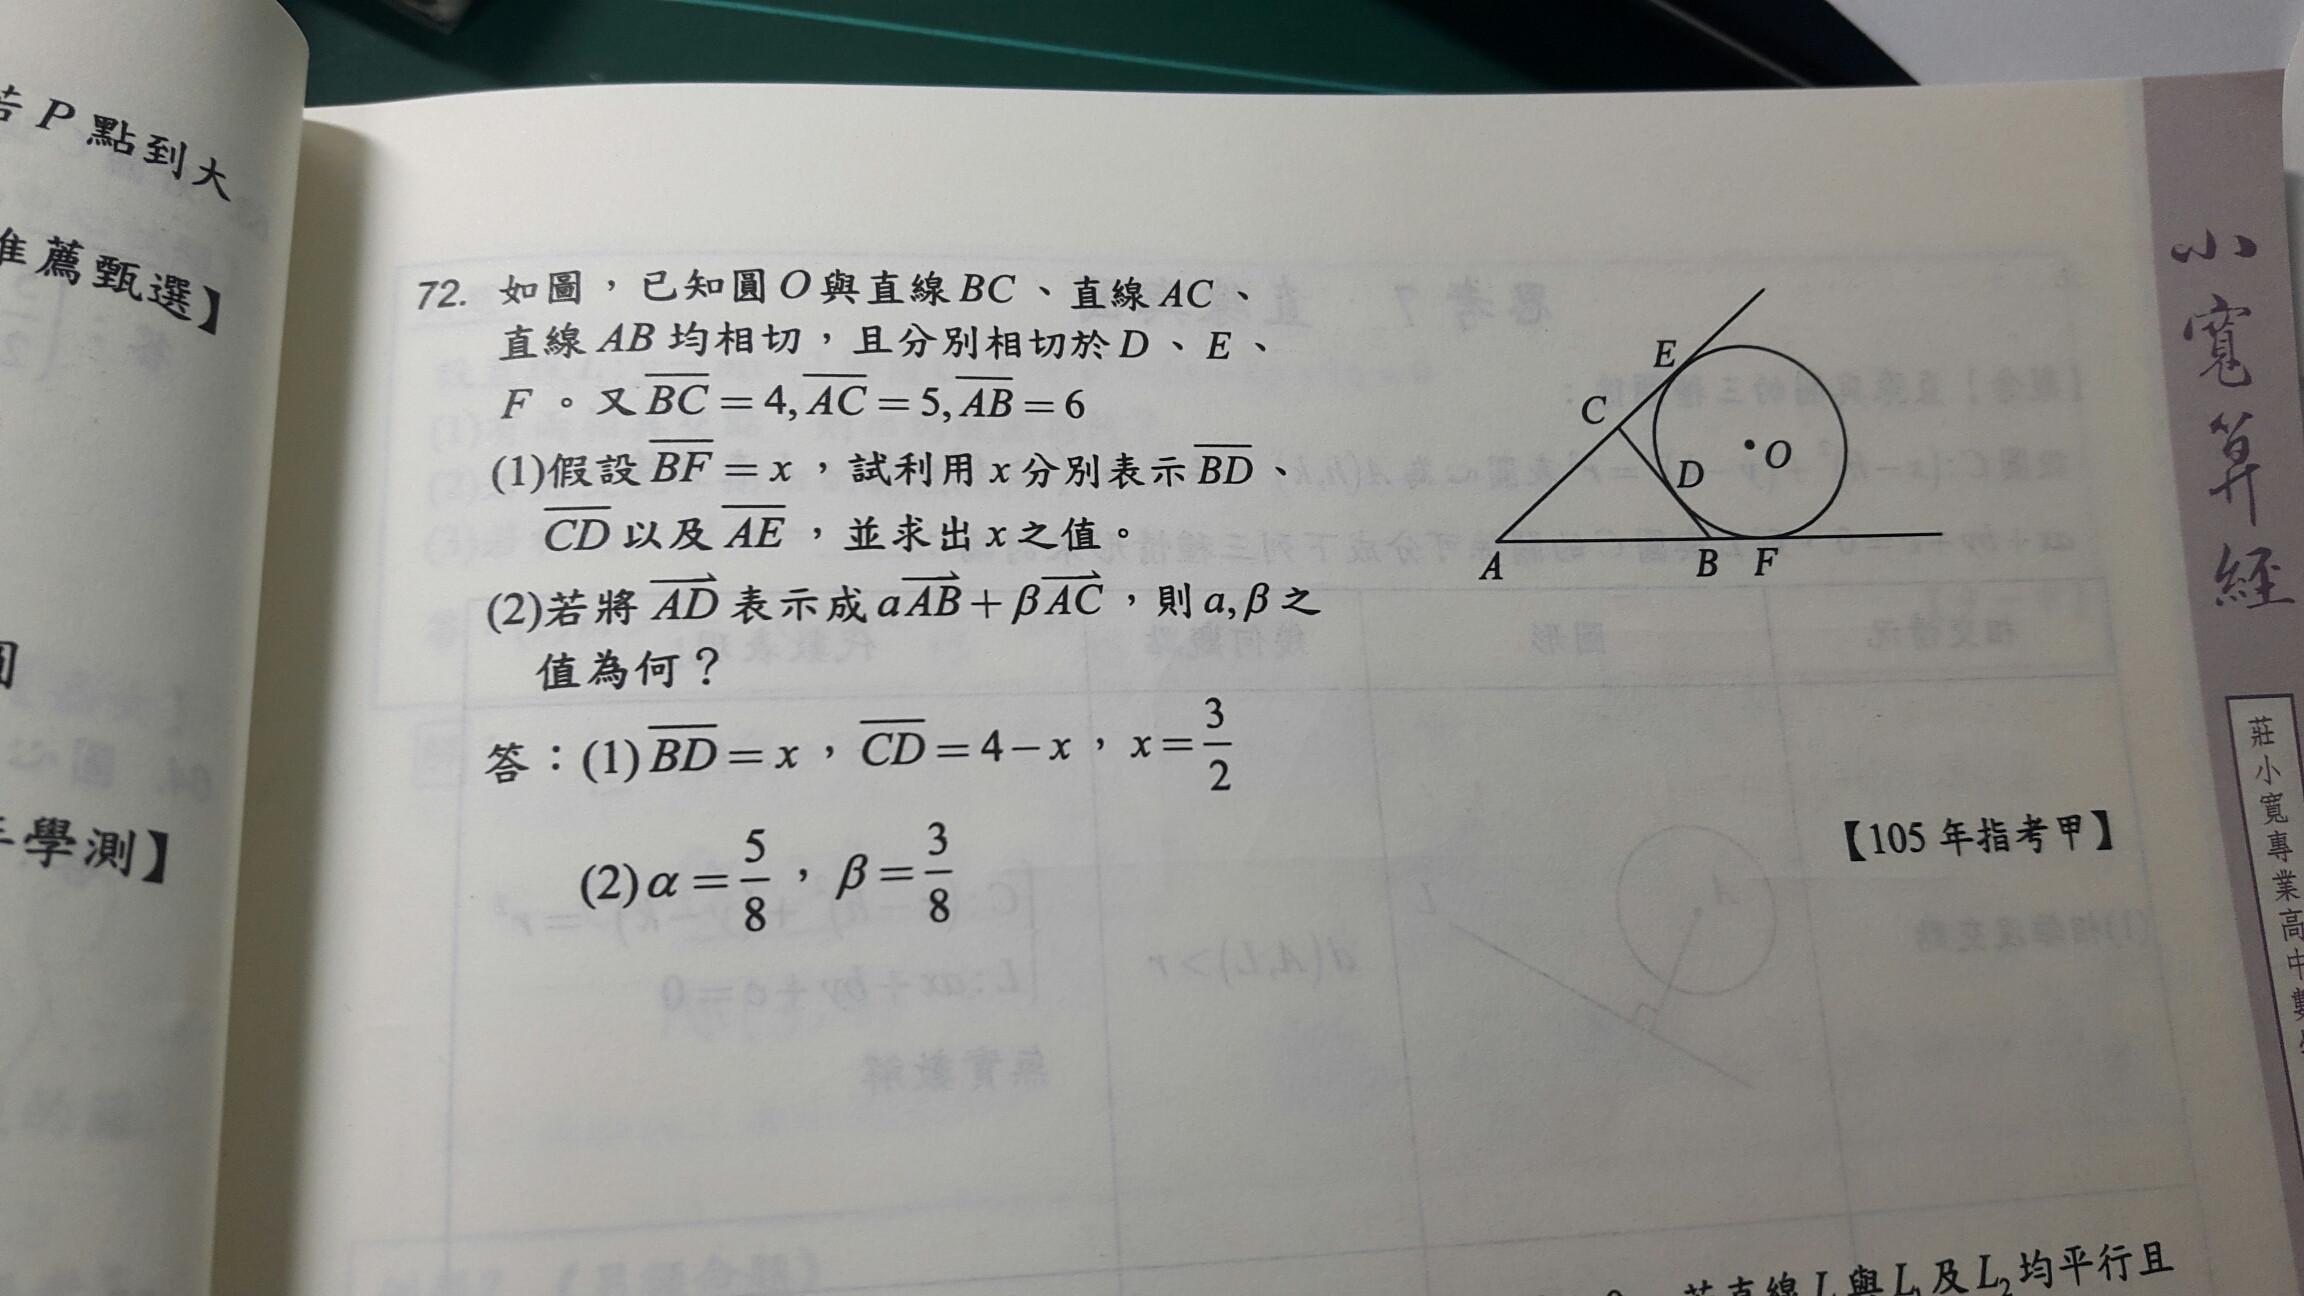 若P點到大
推薦甄選】
年學測】
72. 如圖，已知圓O與直線BC、直線AC、
直線AB均相切，且分別相切於D、E、
F。又BC=4,AC=5,AB=6
(1)假設BF=x，試利用x分別表示BD、
CD以及AE，並求出x之值。
(2)若將AD表示成aAB+βAC，則a,β之
值為何？
答：(1)BD=x，CD=4-x，x=3/2
(2)α=5/8，β=3/8
【105年指考甲】
E
C
O
D
A
B
F
小寬算經
莊小寬專業高中數學
若直線L與L₁及L₂均平行且